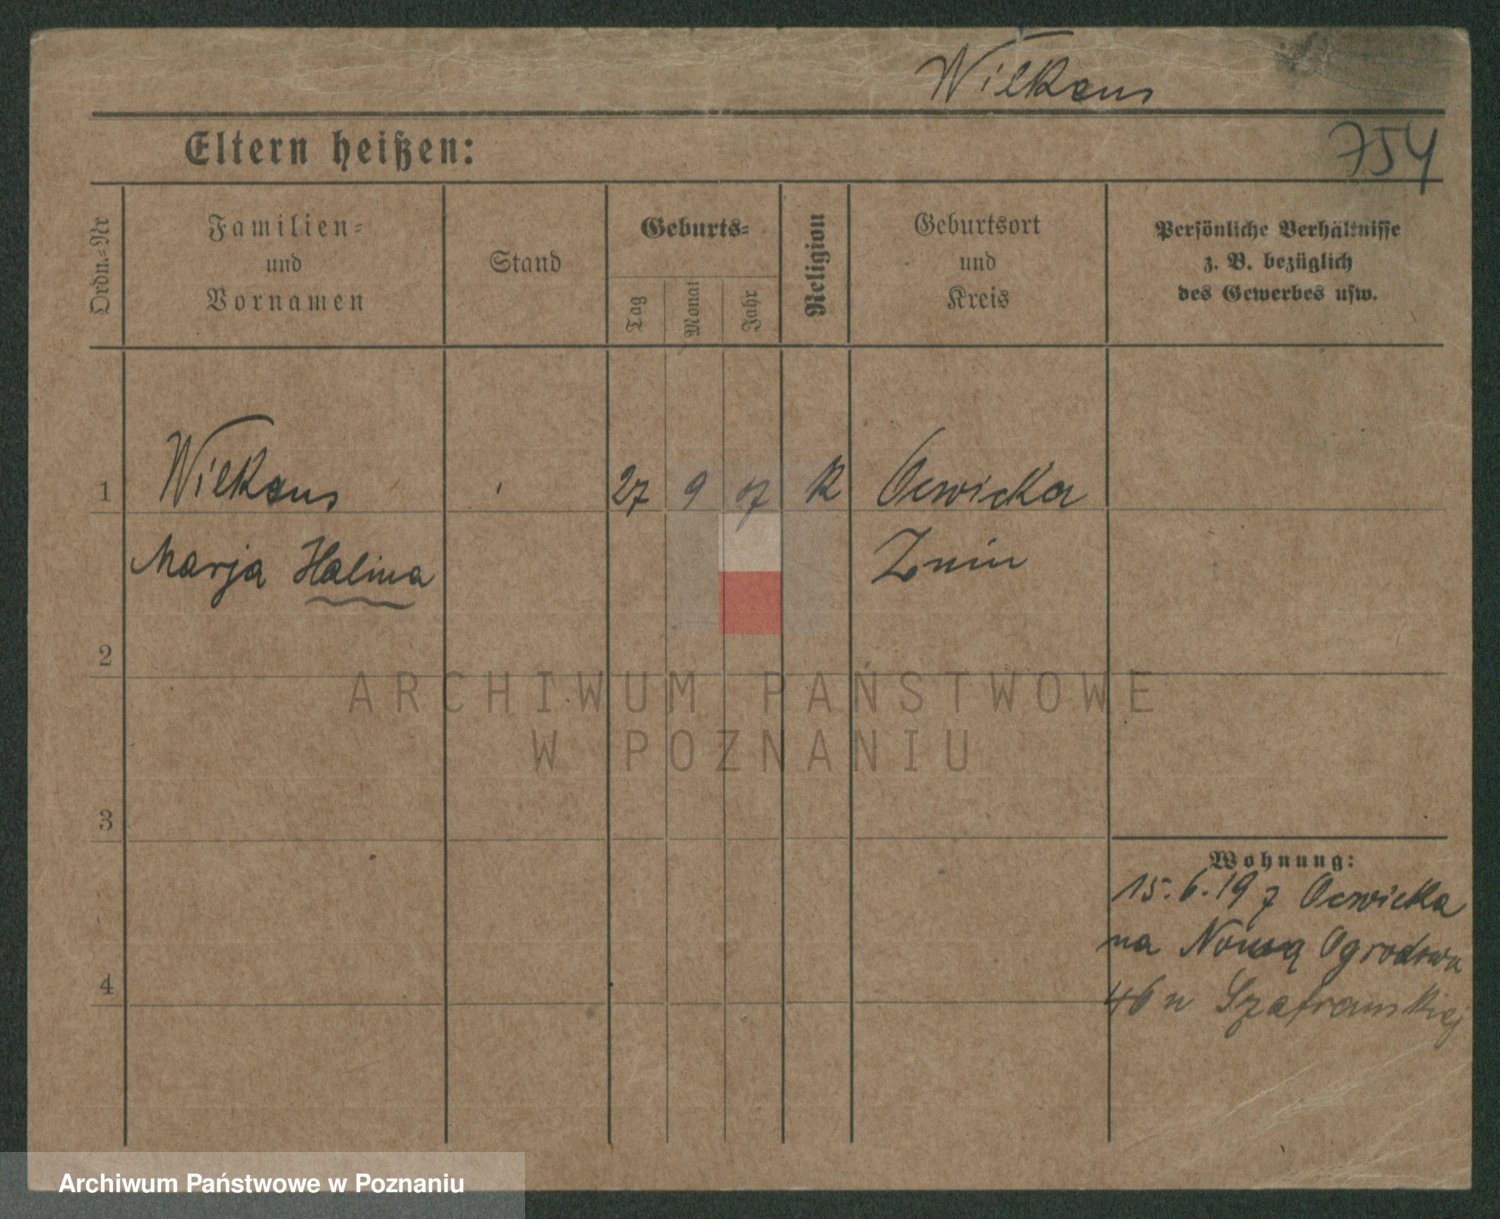 Wilkans
Eltern heißen:
754
Ordn.-Nr
Familien-
und
Vornamen
Stand
Geburts-
Tag
Monat
Jahr
Religion
Geburtsort
und
Kreis
Persönliche Verhältnisse
z. B. bezüglich
des Gewerbes usw.
1
Wilkans
27 9 07 K Ocwieka
Marja Halina
Znin
2
ARCHIWUM PAŃSTWOWE
W POZNANIU
3
Wohnung:
15.6.19 z Ocwieka
na Nową Ogrodową
4
46 u Szafranskiej
Archiwum Państwowe w Poznaniu